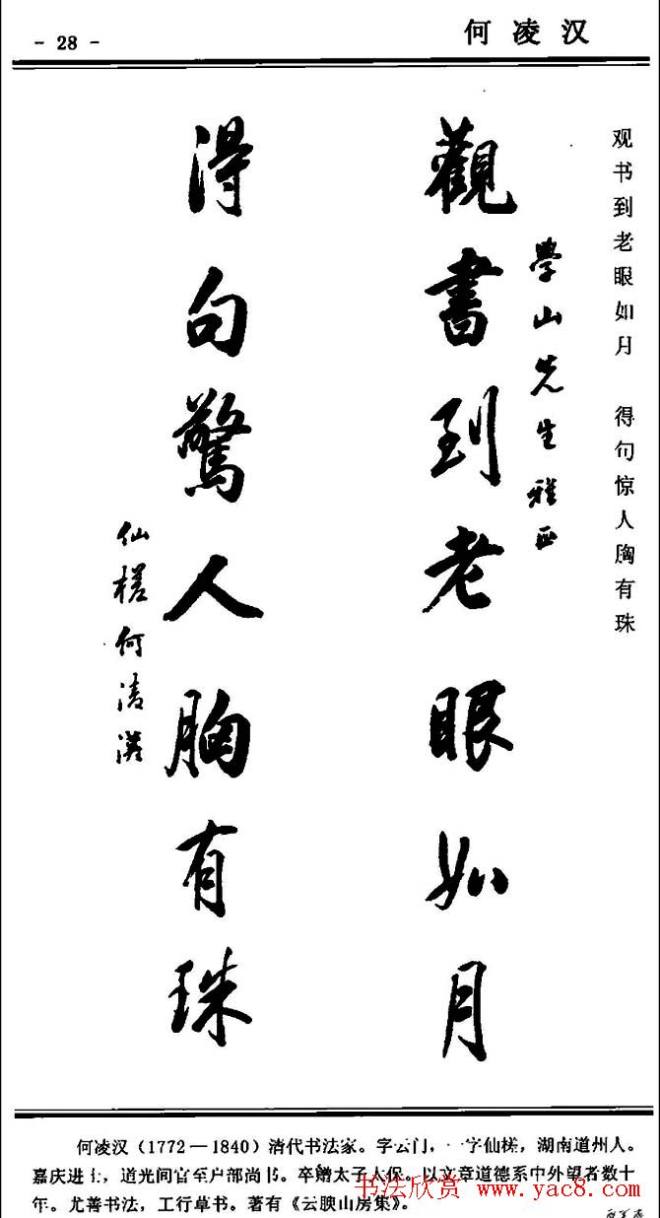 - 28 -
何凌汉
观书到老眼如月 得句惊人胸有珠
學山先生雅正
觀書到老眼如月
得句驚人胸有珠
仙槎何淩漢
何凌汉（1772—1840）清代书法家。字云门，一字仙槎，湖南道州人。
嘉庆进士，道光间官至户部尚书。卒赠太子太保。以文章道德系中外望者数十
年。尤善书法，工行草书。著有《云腴山房集》。
书法欣赏 www.yac8.com